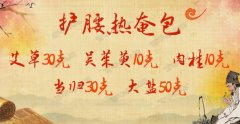 护腰热奄包
艾草30克 吴茱萸10克 肉桂10克
当归30克 大盐50克